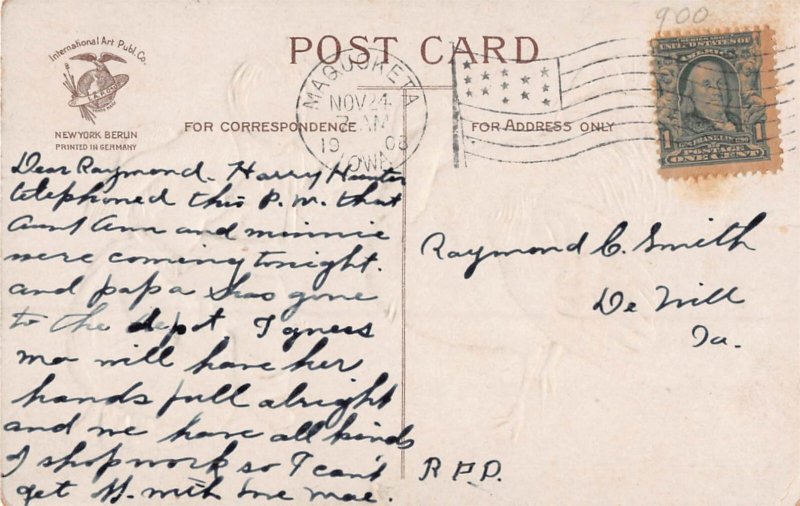 900
International Art Publ. Co.
POST CARD
NEW YORK BERLIN
PRINTED IN GERMANY
FOR CORRESPONDENCE
FOR ADDRESS ONLY
MAQUOKETA
NOV 24
7 AM
1908
IOWA
UNITED STATES OF
AMERICA
1 1
POSTAGE
ONE CENT
Dear Raymond- Harry Hunter
telephoned this P.M. that
Aunt Ann and minnie
were coming tonight.
and papa has gone
to the depot, I guess
ma will have her
hands full alright
and we have all kinds
of shop work so I can't
get with me mae.
Raymond C. Smith
De Will
Ia.
R F D.